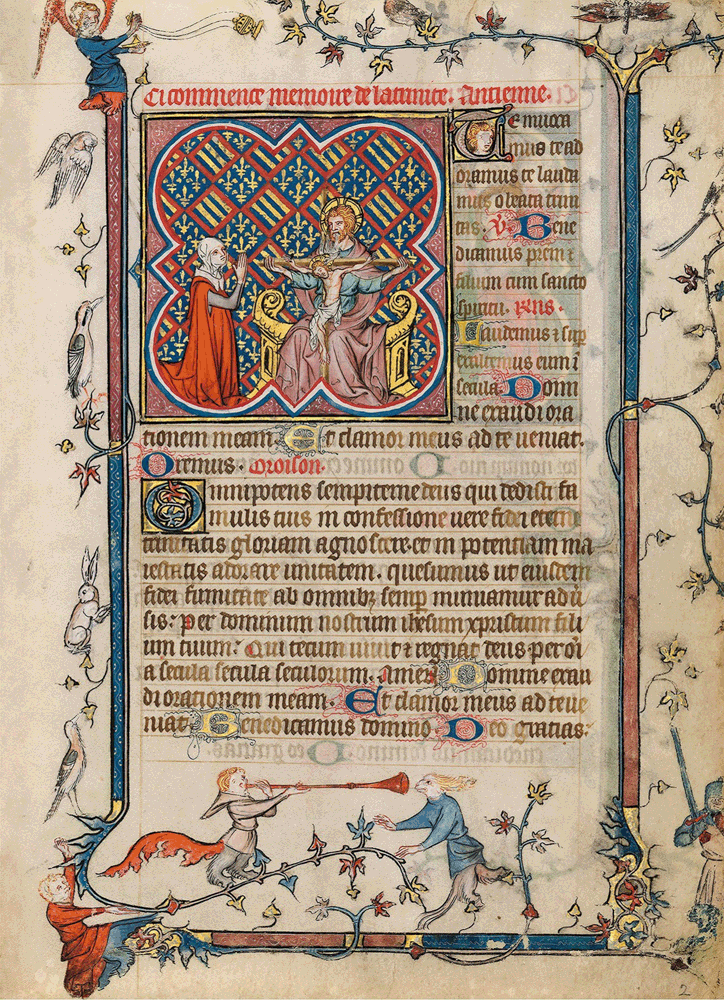 Ci commence memoire de la trinite. Antienne.
Te inuoca
mus te ad
oramus te lauda
mus o beata trini
tas. V. Bene
dicamus prem z
filium cum sancto
spiritu. Rns.
Laudemus z sup
exaltemus eum i
secula. Domi
ne exaudi ora
tionem meam. Et clamor meus ad te ueniat.
Oremus. Oroison.
Omnipotens sempiterne deus qui dedisti fa
mulis tuis in confessione uere fidei eterne
trinitatis gloriam agnoscere. et in potentiam ma
iestatis adorare unitatem. quesumus ut eiusdem
fidei firmitate ab omnibz semp muniamur aduˀ
sis. per dominum nostrum ihesum xpristum fili
um tuum. Qui tecum uiuit z regnat deus per oi
a secula secula seculorum. Amen. Domine exau
di orationem meam. Et clamor meus ad te ue
niat. Benedicamus domino. Deo gratias.
2